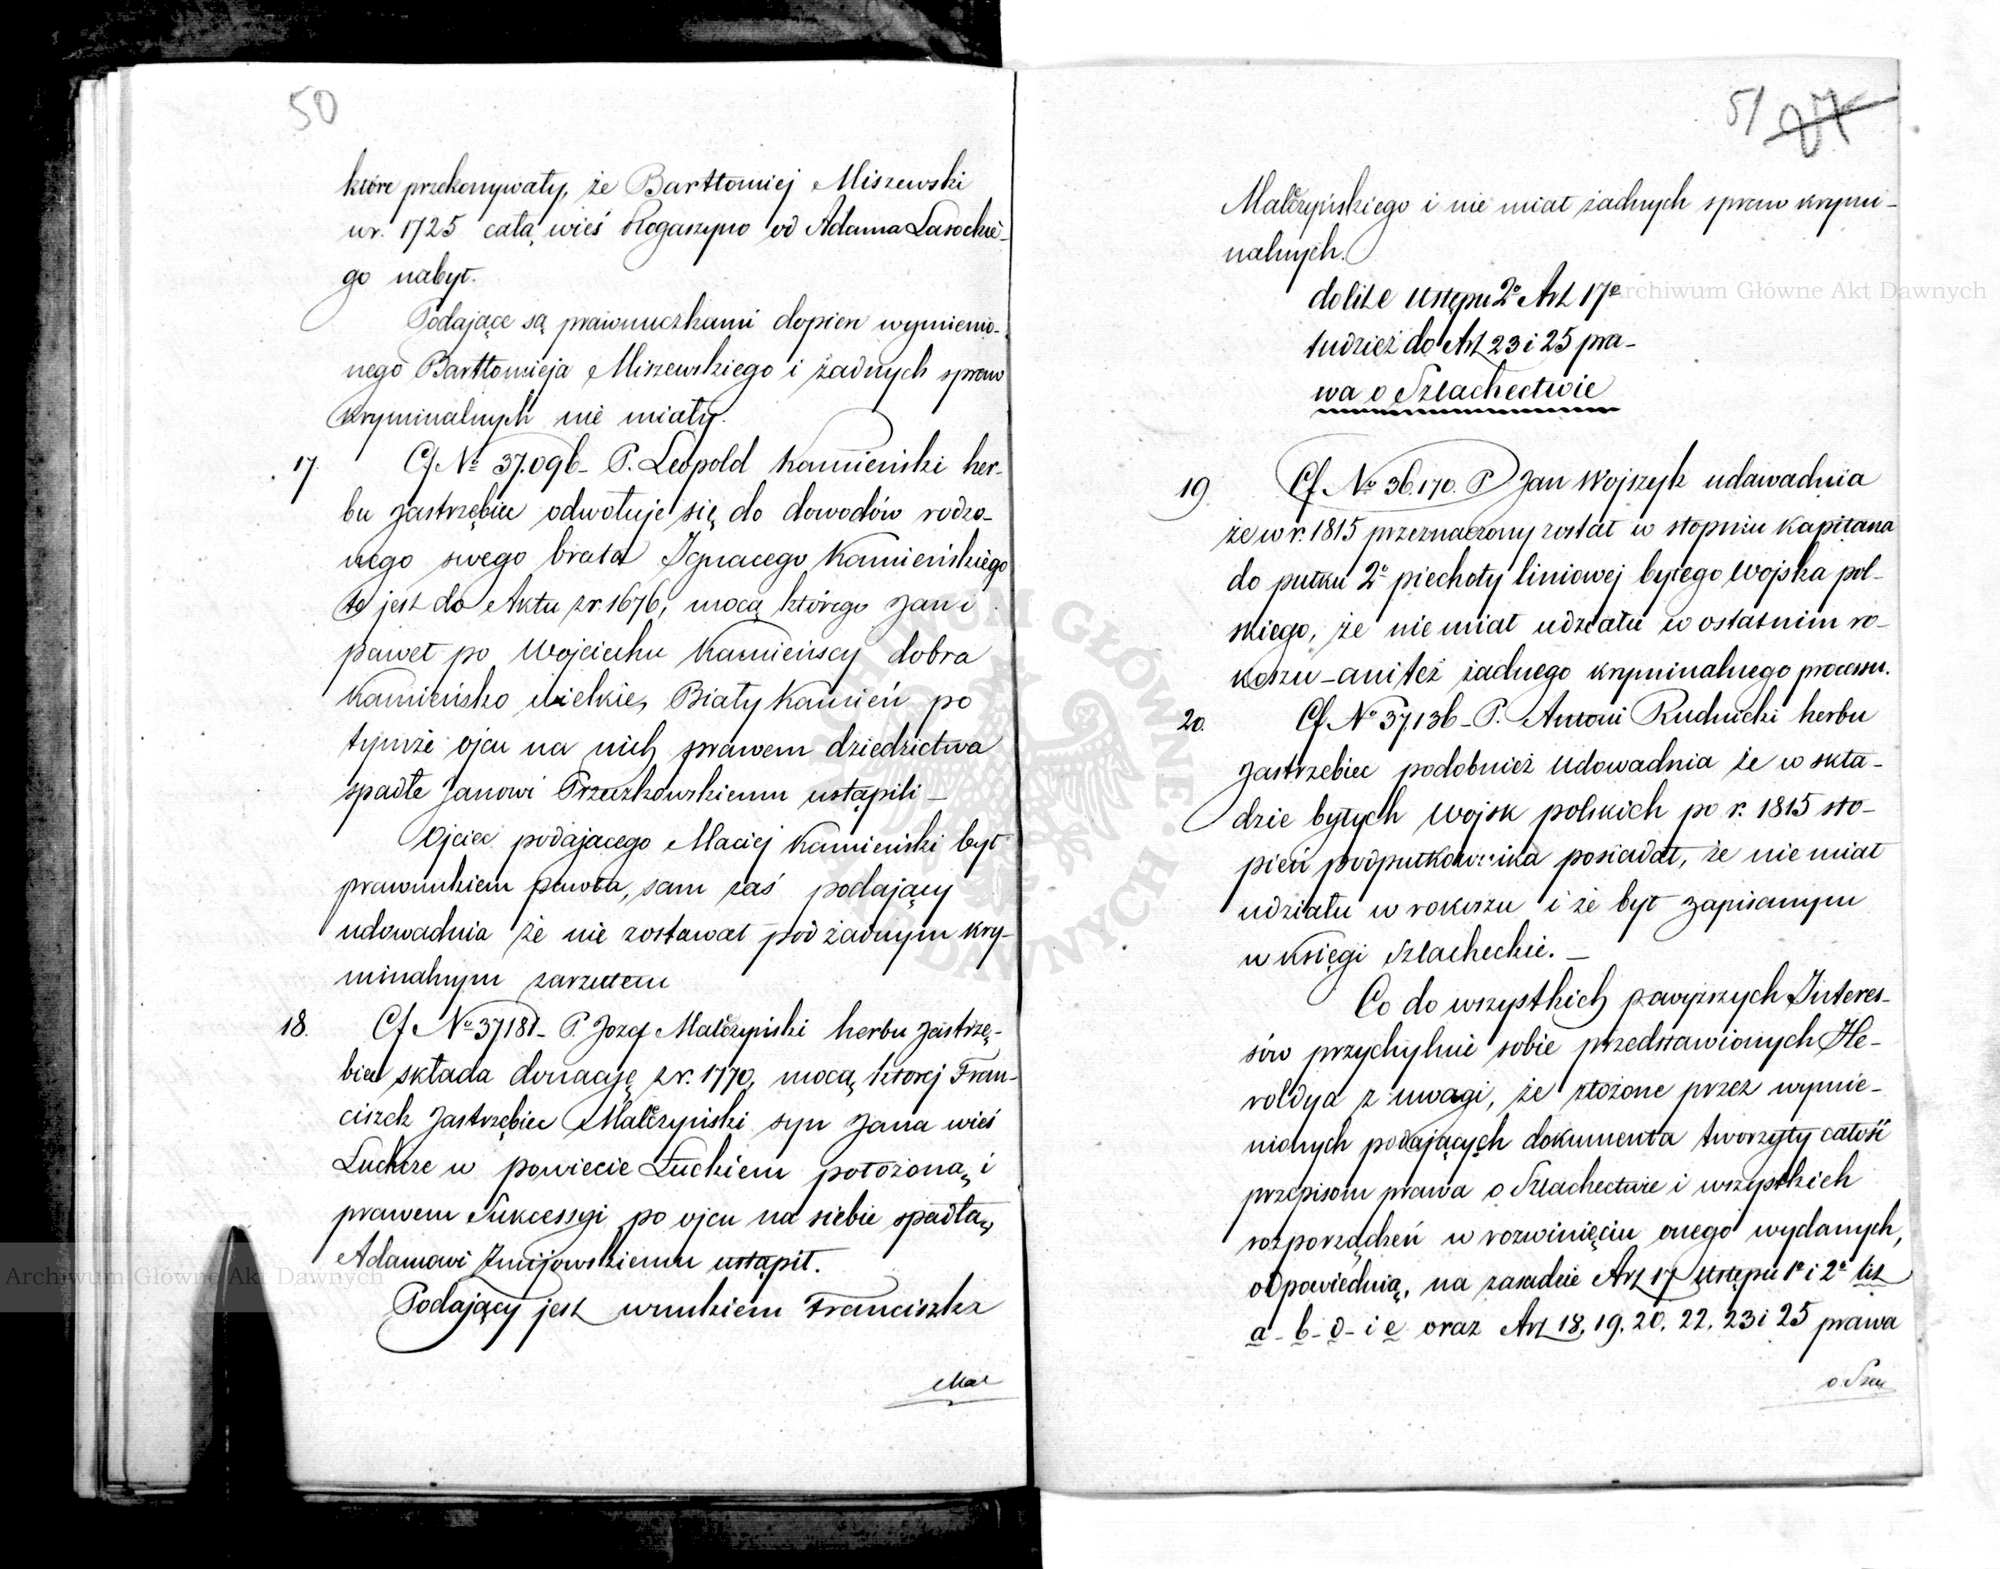 50
które przekonywały, że Bartłomiej Miszewski
w r. 1725 całą wieś Rogaszyno od Adama Lasockie-
go nabył.
Podające są prawnuczkami dopiero wymienio-
nego Bartłomieja Miszewskiego i żadnych spraw
kryminalnych nie miały.
17. Cf No 37.096 - P. Leopold Kamieński her-
bu Jastrzębiec odwołuje się do dowodów rodzo-
nego swego brata Ignacego Kamieńskiego
to jest do Aktu z r. 1676, mocą którego Jan i
Paweł po Wojciechu Kamieńscy dobra
Kamieńsko wielkie, Biały Kamień po
tymże ojcu na nich prawem dziedzictwa
spadłe Janowi ustąpili -
Ojciec podającego Maciej Kamieński był
prawnukiem Pawła, sam zaś podający
udowadnia że nie zostawał pod żadnym kry-
minalnym zarzutem
18. Cf No 37181 - P. Jozef Malczyński herbu Jastrzę-
biec składa donację z r. 1770, mocą ktorej Fran-
ciszek Jastrzębiec Malczyński syn Jana wieś
w powiecie Łuckiem położoną i
prawem Sukcessyi po ojcu na siebie spadłą,
Adamowi Żmijowskiemu ustąpił.
Podający jest wnukiem Franciszka
Mal
51 27
Malczyńskiego i nie miał żadnych spraw krymi-
nalnych.
do lit e Ustępu 2o Art 17o
tudzież do Art 23 i 25 pra-
wa o Szlachectwie
19. Cf No 36.170. P Jan Wojszyk udawadnia
że w r. 1815 przeznaczony został w stopniu Kapitana
do pułku 2o piechoty liniowej byłego Wojska pol-
skiego, że nie miał udziału w ostatnim ro-
koszu - ani też żadnego kryminalnego processu.
20. Cf No 37,136 - P. Antoni Rudnicki herbu
Jastrzebiec podobnież udowadnia że w skła-
dzie byłych Wojsk polskich po r. 1815 sto-
pień podpułkownika posiadał, że nie miał
udziału w rokoszu i że był zapisanym
w Księgi Szlacheckie. -
Co do wszystkich powyższych Interes-
sów przychylnie sobie przedstawionych He-
roldya z uwagi, że złożone przez wymie-
nionych podających dokumenta tworzyły całość
przepisom prawa o Szlachectwie i wszystkich
rozporządzeń w rozwinięciu onego wydanych,
odpowiednią, na zasadzie Art 17 Ustępu 1o i 2o lit
a - b - d - i e oraz Art 18, 19. 20. 22. 23 i 25 prawa
o Szla
Archiwum Główne Akt Dawnych
Archiwum Główne Akt Dawnych
ARCHIWUM GŁÓWNE AKT DAWNYCH